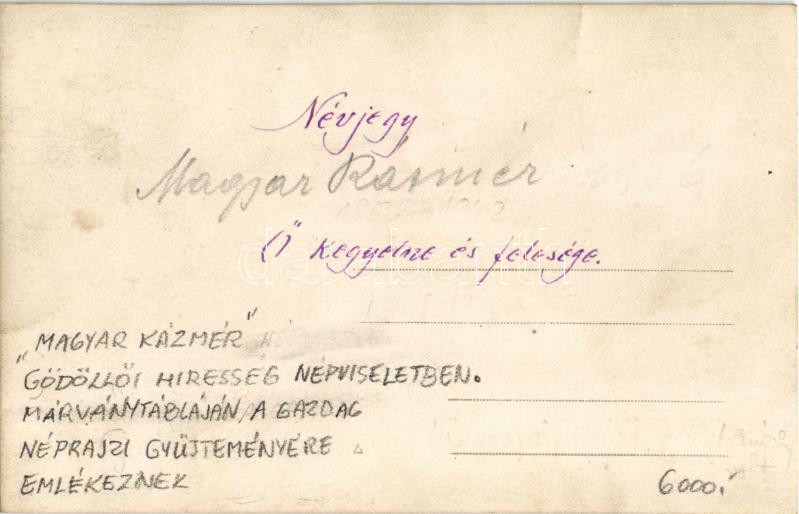 Névjegy
Magyar Kázmér
Ő Kegyelme és felesége.
"MAGYAR KÁZMÉR"
GÖDÖLLŐI HIRESSÉG NÉPVISELETBEN.
MÁRVÁNYTÁBLÁJÁN A GAZDAG
NÉPRAJZI GYŰJTEMÉNYÉRE
EMLÉKEZNEK
6000.-